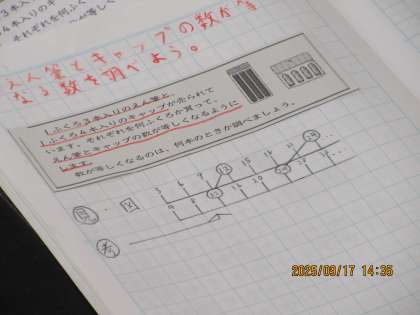 3本入り
4本入りのキャップ
それぞれを何ふくろ
等しく
えん筆とキャップの数が等
なる数を調べよう。
1ふくろ3本入りのえん筆と、
1ふくろ4本入りのキャップが売られて
います。それぞれを何ふくろか買って、
えん筆とキャップの数が等しくなるように
します。
数が等しくなるのは、何本のときか調べましょう。
見 図 3 6 9 12 15 18 21 24
4 8 12 16 20 24
考
2025/09/17 14:35